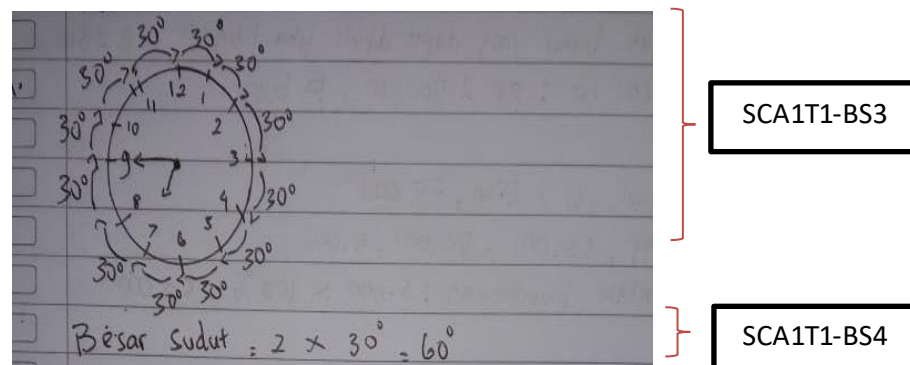 30° 30°
30° 30°
30° 30°
30° 30°
30° 30°
30° 30°
12
11 1
10 2
9 3
8 4
7 5
6
Besar sudut = 2 x 30° = 60°
SCA1T1-BS3
SCA1T1-BS4